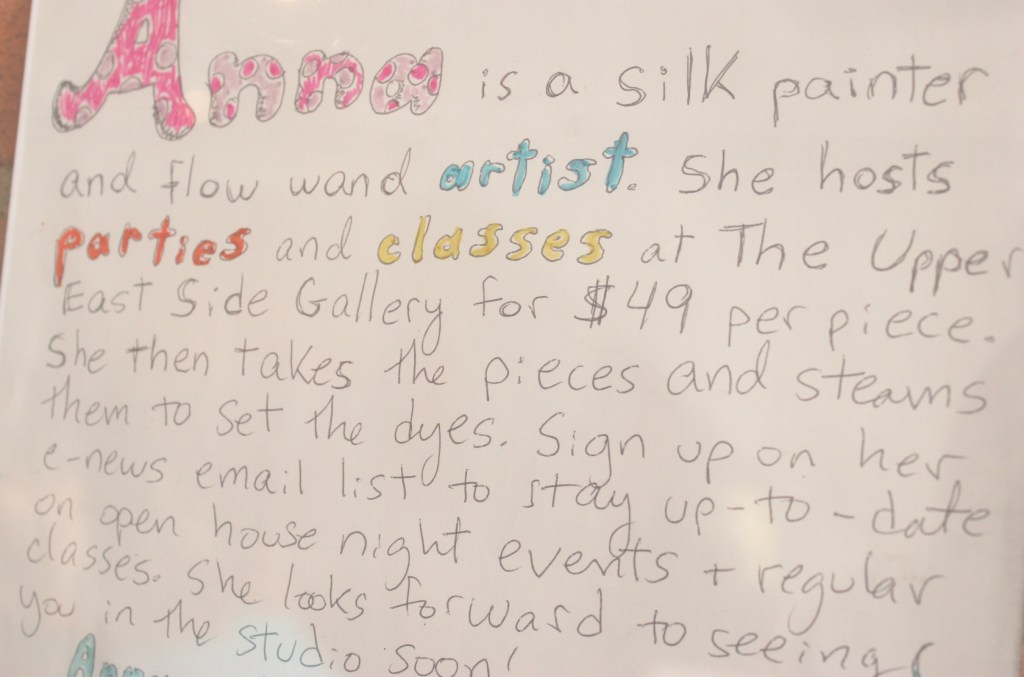 Anna is a silk painter
and flow wand artist. She hosts
parties and classes at The Upper
East Side Gallery for $49 per piece.
She then takes the pieces and steams
them to set the dyes. Sign up on her
e-news email list to stay up-to-date
on open house night events + regular
classes. She looks forward to seeing
you in the studio soon!